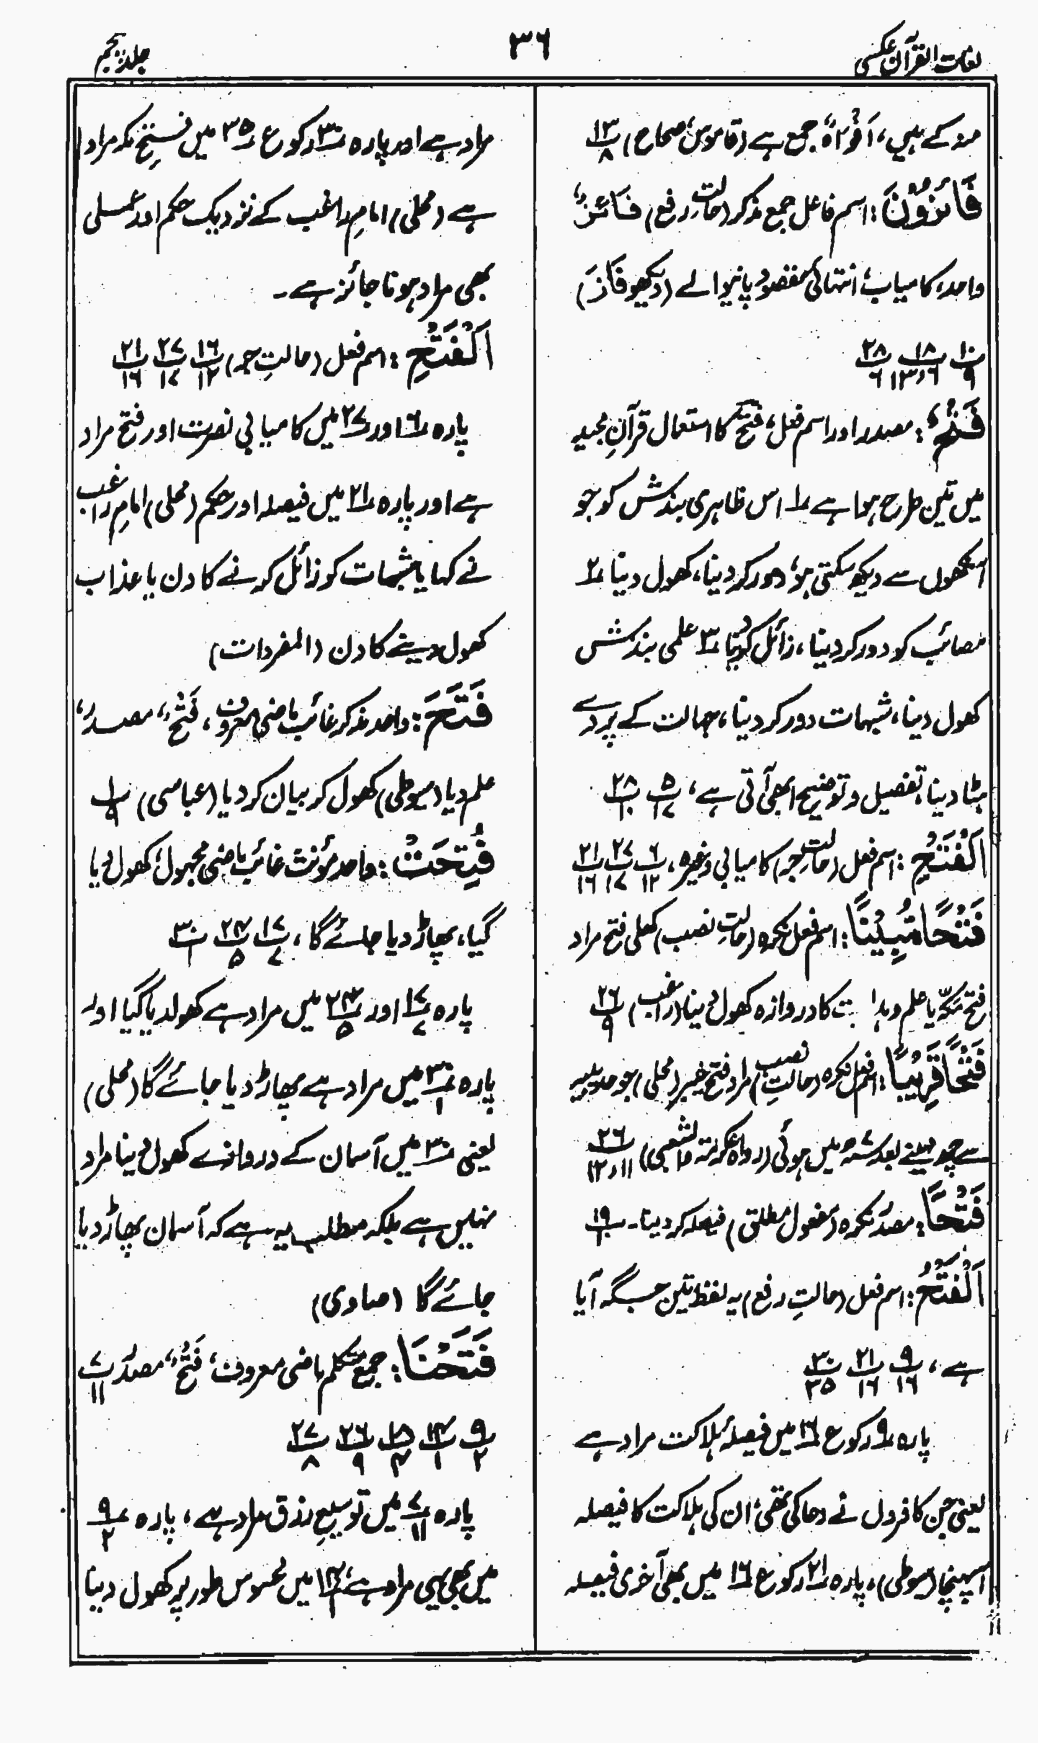 لغات القرآن عکسی
۳۶
جلد پنجم
منہ کے ہیں، اَفْوَاہٌ جمع ہے (قاموس، صحاح) ۱۳/۸
فَائِزُوْنَ: اسم فاعل جمع مذکر (حالت رفع) فَائِزٌ
واحد، کامیاب، انتہائی مقصود پانیوالے (دیکھو فَازَ)
۱۰/۹ ۱۸/۶،۱۳ ۲۸/۶
فَتْحٌ: مصدر اور اسم فعل، فتح کا استعمال قرآنِ مجید
میں تین طرح ہوا ہے ۱ اس ظاہری بندش کو جو
آنکھوں سے دیکھ سکتی ہو، دور کر دینا، کھول دینا ۲
مصائب کو دور کر دینا، زائل کر دینا ۳ علمی بندش
کھول دینا، شبہات دور کر دینا، جہالت کے پردے
ہٹا دینا، تفصیل و توضیح بھی آتی ہے، ۵/۱۲ ۲۸/۱۰
اَلْفَتْحِ: اسم فعل (حالت جر) کامیابی وغیرہ، ۶/۱۲ ۲۷/۱۷ ۲۱/۱۶
فَتْحًا مُّبِیْنًا: اسم فعل نکرہ (حالتِ نصب) کھلی فتح مراد
فتح مکہ یا علم و ہدایت کا دروازہ کھول دینا (راغب) ۲۶/۹
فَتْحًا قَرِیْبًا: اسم فعل نکرہ (حالتِ نصب) مراد فتح خیبر (محلی) جو حدیبیہ
سے چھ مہینے بعد ۷ھ میں ہوئی (رواہ عکرمۃ والشعبی) ۲۶/۱۱،۱۲
فَتْحًا: مصدر نکرہ (مفعول مطلق) فیصلہ کر دینا۔ ۱۹/۱
اَلْفَتْحُ: اسم فعل (حالتِ رفع) یہ لفظ تین جگہ آیا
ہے، ۹/۱۶ ۲۱/۱۶ ۳۰/۳۵
پارہ ۹ رکوع ۱۶ میں فیصلۂ ہلاکت مراد ہے
یعنی جن کافروں نے دعا کی تھی ان کی ہلاکت کا فیصلہ
آپہنچا (سیوطی)، پارہ ۲۱ رکوع ۱۶ میں بھی آخری فیصلہ
مراد ہے اور پارہ ۳۰ رکوع ۳۵ میں فتح مکہ مراد
ہے (محلی) امام راغب کے نزدیک حکم اور علمی
بھی مراد ہونا جائز ہے۔
اَلْفَتْحِ: اسم فعل (حالتِ جر) ۱۶/۱۲ ۲۷/۱۷ ۲۱/۱۶
پارہ ۶ اور ۲۷ میں کامیابی نصرت اور فتح مراد
ہے اور پارہ ۲۱ میں فیصلہ اور حکم (محلی) امامِ راغب
نے کہا یا شبہات کو زائل کرنے کا دن یا عذاب
کھول دینے کا دن (المفردات)
فَتَحَ: واحد مذکر غائب ماضی معروف، فَتْحٌ، مصدر،
علم دیا (سیوطی) کھول کر بیان کر دیا (عباسی) ۱/۹
فُتِحَتْ: واحد مؤنث غائب ماضی مجہول، کھول دیا
گیا، پھاڑ دیا جائے گا، ۱۷/۷ ۲۴/۵ ۳۰/۱
پارہ ۱۷/۷ اور ۲۴/۵ میں مراد ہے کھولدیا گیا اور
پارہ ۳۰/۱ میں مراد ہے پھاڑ دیا جائے گا (محلی)
یعنی ۳۰ میں آسمان کے دروازے کھول دینا مراد
نہیں ہے بلکہ مطلب یہ ہے کہ آسمان پھاڑ دیا
جائے گا (صاوی)
فَتَحْنَا: جمع متکلم ماضی معروف، فَتْحٌ، مصدر ۷/۱۱
۹/۲ ۱۴/۱ ۱۸/۴ ۲۶/۹ ۲۷/۸
پارہ ۷/۱۱ میں توسیعِ رزق مراد ہے، پارہ ۹/۲
میں بھی یہی مراد ہے، ۱۴/۱ میں محسوس طور پر کھول دینا